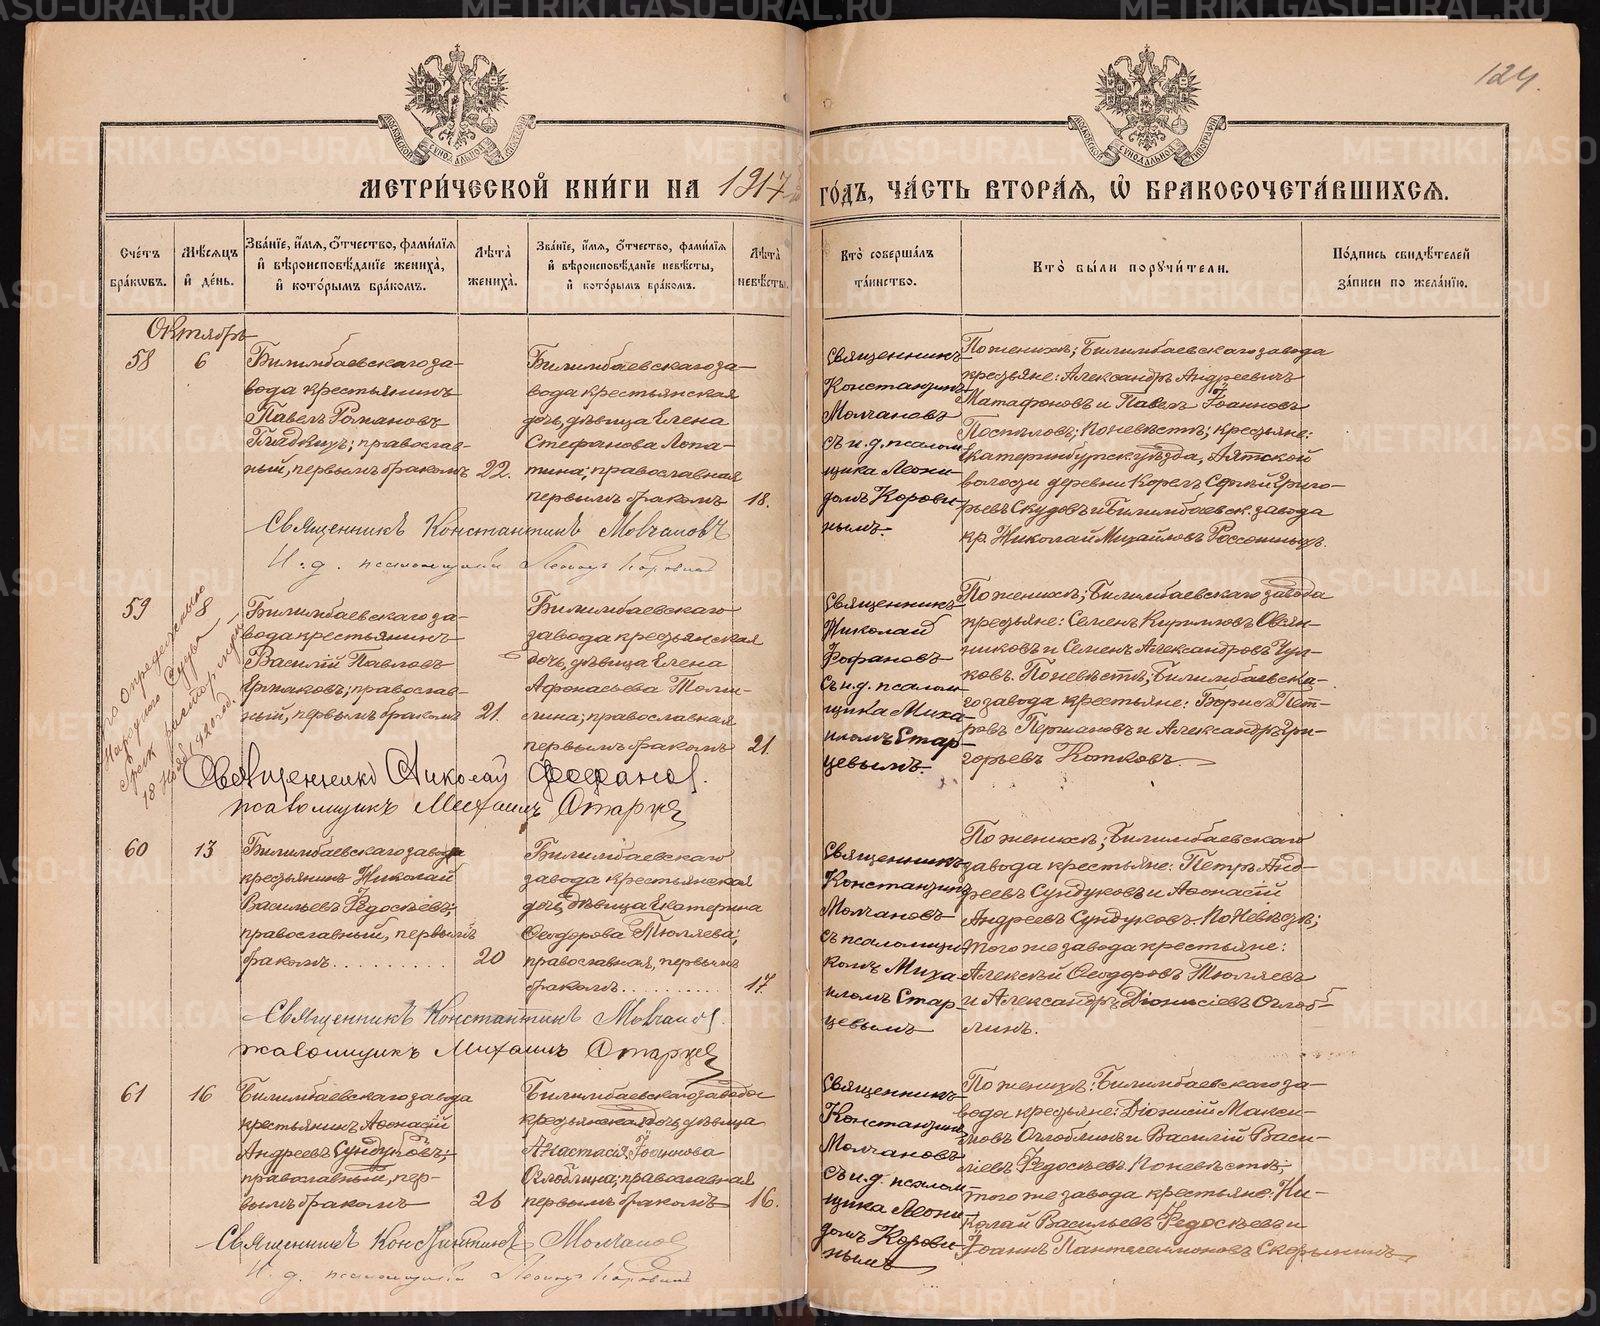 124.
МЕТРИ́ЧЕСКОЙ КНИ́ГИ НА 1917 ГО́ДЪ, ЧА́СТЬ ВТОРА́Я, Ѡ҆ БРАКОСОЧЕТА́ВШИХСЯ.
Сче́тъ бра́кѡвъ.
Мѣ́сяцъ и҆ де́нь.
Зва́нїе, и҆́мя, ѻ҆́тчество, фами́лїя и҆ вѣроисповѣ́данїе жениха̀, и҆ кото́рымъ бра́комъ.
Лѣ́та̀ жениха̀.
Зва́нїе, и҆́мя, ѻ҆́тчество, фами́лїя и҆ вѣроисповѣ́данїе невѣ́сты, и҆ кото́рымъ бра́комъ.
Лѣ́та̀ невѣ́сты.
Кто̀ соверша́лъ та́инство.
Кто̀ бы́ли порꙋчи́тели.
По́дпись свидѣ́телей за́писи по жела́нїю.
Октябрь
58
6
Билимбаевскаго за-
вода крестьянинъ
Павелъ Романовъ
православ-
ный, первымъ бракомъ
22.
Билимбаевскаго за-
вода крестьянская
дочь, дѣвица Елена
Стефанова Лопа-
тина; православная
первымъ бракомъ
18.
Священникъ
Константинъ
Молчановъ
съ и. д. псалом-
щика Леони-
домъ Корови-
нымъ.
По женихѣ; Билимбаевскаго завода
крестьяне: Александръ Андреевичъ
Матафоновъ и Павелъ Іоанновъ
Поспѣловъ; по невѣстѣ; крестьяне:
Екатеринбургск. уѣзда, Аятской
волости деревни Корелъ Сергѣй Григо-
рьевъ Скудовъ и Билимбаевск. завода
кр. Николай Михайловъ
Священникъ Константинъ Молчановъ
И. д. псаломщика Леонидъ Коровинъ
59
8
Билимбаевскаго за-
вода крестьянинъ
Василій Павловъ
Ермаковъ; православ-
ный, первымъ бракомъ
21.
Билимбаевскаго
завода крестьянская
дочь, дѣвица Елена
Афонасьева Толма-
православная
первымъ бракомъ
21.
Священникъ
Николай
Фофановъ
съ и. д. псалом-
щика Миха-
иломъ Стар-
цевымъ.
По женихѣ; Билимбаевскаго завода
крестьяне: Семенъ Кирилловъ Овсян-
никовъ и Семенъ Александровъ Чул-
ковъ. По невѣстѣ; Билимбаевска-
го завода крестьяне: Борисъ Пет-
ровъ и Александръ Гри-
горьевъ Котковъ.
опредѣленью
Народнаго Суда
бракъ расторгнутъ
18 1920 год.
Священникъ Николай Фофановъ.
псаломщикъ Михаилъ Старцевъ
60
13
Билимбаевскаго завода
крестьянинъ Николай
Васильевъ Ѳедосѣевъ;
православный, первымъ
бракомъ..........
20
Билимбаевскаго
завода крестьянская
дочь, дѣвица Екатерина
Ѳеодорова Тюляева;
православная, первымъ
бракомъ..........
17.
Священникъ
Константинъ
Молчановъ
съ псаломщи-
комъ Миха-
иломъ Стар-
цевымъ
По женихѣ; Билимбаевскаго
завода крестьяне: Петръ Анд-
реевъ Сундуковъ и Афонасій
Андреевъ Сундуковъ. По невѣстѣ;
того же завода крестьяне:
Алексѣй Ѳеодоровъ Тюляевъ
и Александръ Діонисіевъ Оглоб-
линъ.
Священникъ Константинъ Молчановъ.
псаломщикъ Михаилъ Старцевъ
61
16
Билимбаевскаго завода
крестьянинъ Афонасій
Андреевъ Сундуковъ;
православный, пер-
вымъ бракомъ
26
Билимбаевскаго завода
крестьянская дочь, дѣвица
Анастасія Іоаннова
Оглоблина; православная
первымъ бракомъ
16.
Священникъ
Константинъ
Молчановъ
съ и. д. псалом-
щика Леони-
домъ Корови-
нымъ
По женихѣ: Билимбаевскаго за-
вода крестьяне: Діонисій Макси-
мовъ Оглоблинъ и Василій Васи-
ліевъ Ѳедосѣевъ. По невѣстѣ;
того же завода крестьяне: Ни-
колай Васильевъ Ѳедосѣевъ и
Іоаннъ Пантелеимоновъ Скорынинъ
Священникъ Константинъ Молчановъ
И. д. псаломщика Леонидъ Коровинъ
METRIKI.GASO-URAL.RU